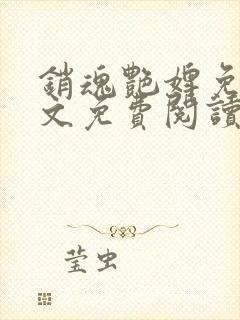 銷魂艷婢免
文免費閱讀
莹虫